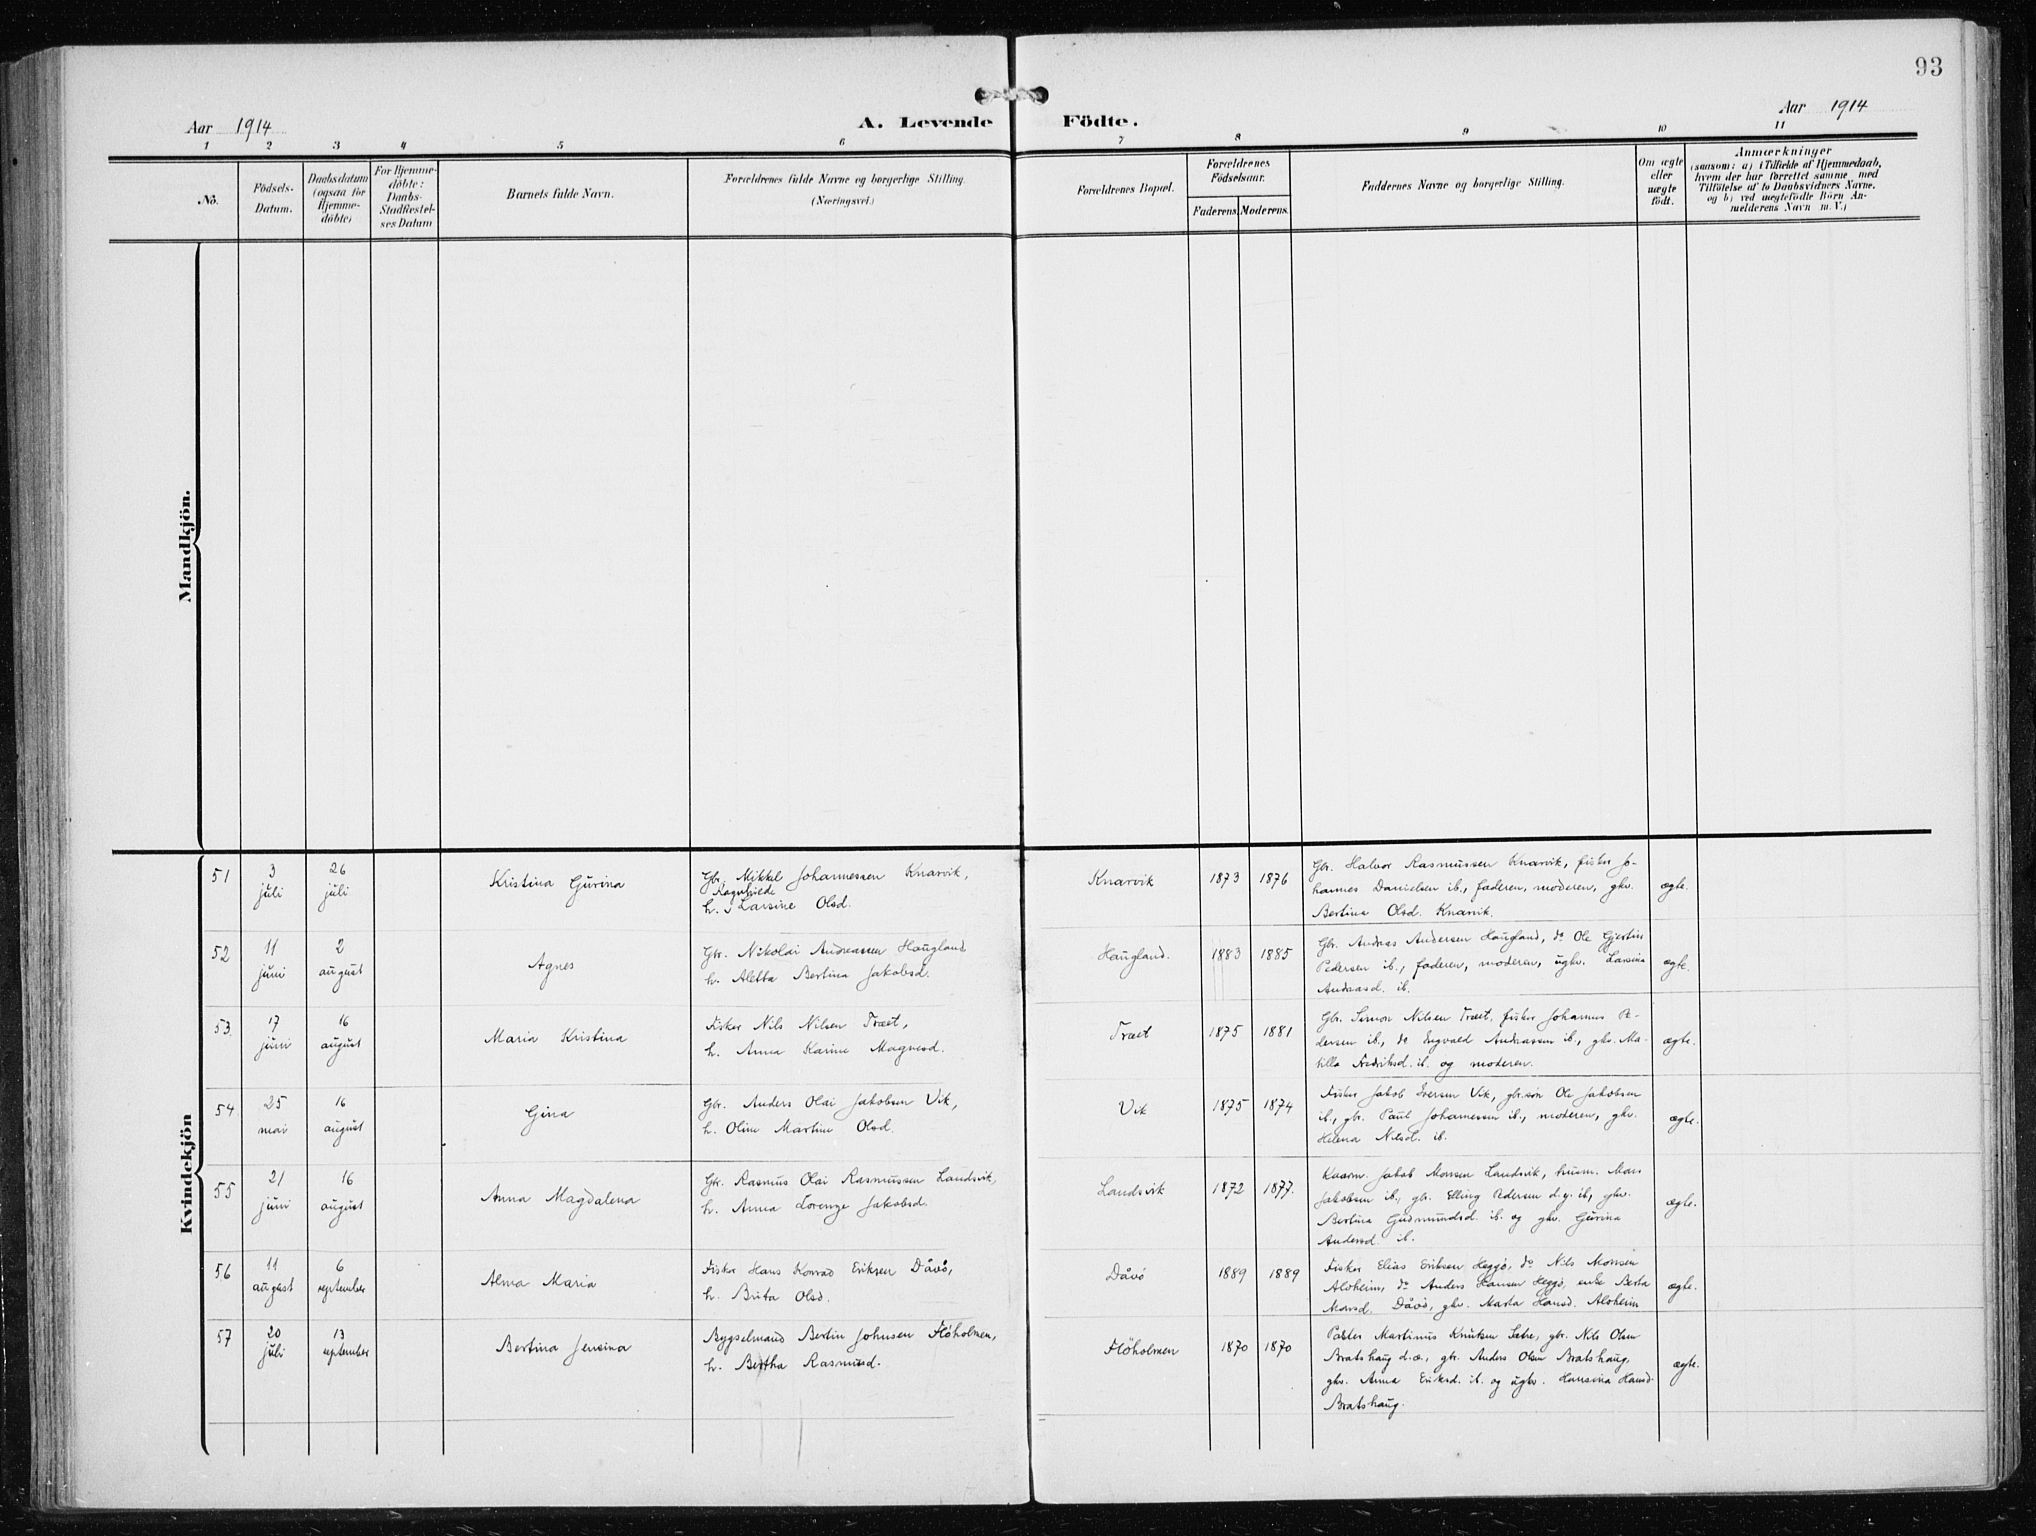 93
Aar 1914
A. Levende Födte.
Aar 1914
1 2 3 4 5 6 7 8 9 10 11
No.
Födsels-
Datum.
Daabsdatum
(ogsaa for
Hjemme-
döbte)
For Hjemme-
döbte:
Daabs-
Stadfestel-
ses Datum
Barnets fulde Navn.
Forældrenes fulde Navne og borgerlige Stilling
(Næringsvei.)
Forældrenes Bopæl.
Forældrenes
Födselsaar.
Faderens. Moderens.
Faddernes Navne og borgerlige Stilling.
Om ægte
eller
uægte
födt.
Anmærkninger
(saasom: a) i Tilfælde af Hjemmedaab,
hvem der har forrettet samme med
Tilföielse af to Daabsvidners Navne.
og b) ved uegtefödte Börn An-
melderens Navn m. V.)
Mandkjön.
Kvindekjön
51
3
juli
26
juli
Kristina Gurina
Gbr. Mikkel Johannessen Knarvik,
Ragnhilde
h. Larsine Olsd.
Knarvik
1873 1876
Gbr. Halvor Rasmussen Knarvik, fisker Jo-
hannes Danielsen ib., faderen, moderen, gkv.
Bertina Olsd. Knarvik.
ægte.
52
11
juni
2
august
Agnes
Gbr. Nikolai Andreassen Haugland
h. Aletta Bertina Jakobsd.
Haugland.
1883 1885
Gbr. Andreas Andersen Haugland, do Ole Gjertin
Pedersen ib., faderen, moderen, ugkv. Larsina
Andreasd. ib.
ægte.
53
17
juni
16
august
Maria Kristina
Fisker Nils Nilsen Træet,
h. Anna Karine Magnesd.
Træet
1875 1881
Gbr. Simon Nilsen Træet, fisker Johannes Pe-
dersen ib., do Ingvald Andreassen ib., gkv. Ma-
tilla Fredriksd. ib. og moderen.
ægte.
54
25
mai
16
august
Gina
Gbr. Anders Olai Jakobsen Vik,
h. Oline Martine Olsd.
Vik
1875 1874
Fisker Jakob Iversen Vik, gbr.søn Ole Jakobsen
ib., gbr. Paul Johannessen ib., moderen, gkv.
Helena Nilsd. ib.
ægte.
55
21
juni
16
august
Anna Magdalena
Gbr. Rasmus Olai Rasmussen Landsvik,
h. Anna Lorenze Jakobsd.
Landsvik
1872 1877.
Kaarm. Jakob Monsen Landsvik, husm. Mons
Jakobsen ib., gbr. Elling Pedersen d.y. ib., gkv.
Bertina Gudmundsd. ib. og gkv. Gurina
Andersd. ib.
ægte.
56
11
august
6
september
Alma Maria
Fisker Hans Konrad Eriksen Dåvø,
h. Brita Olsd.
Dåvø
1889 1889
Fisker Elias Eriksen Heggø, do Nils Monsen
Alvheim, do Anders Hansen Heggø, enke Berta
Monsd. Dåvø, gkv. Marta Hansd. Alvheim
ægte.
57
20
juli
13
september
Bertina Jensina
Bygselmand Bertin Johnsen Flöholmen,
h. Bertha Rasmusd.
Flöholmen
1870 1870
Pakter Martinus Knutsen Sætre, gbr. Nils Olsen
Bratshaug d.æ., gbr. Anders Olsen Bratshaug,
gkv. Anna Eriksd. ib. og ugkv. Hansina Hansd.
Bratshaug.
ægte.